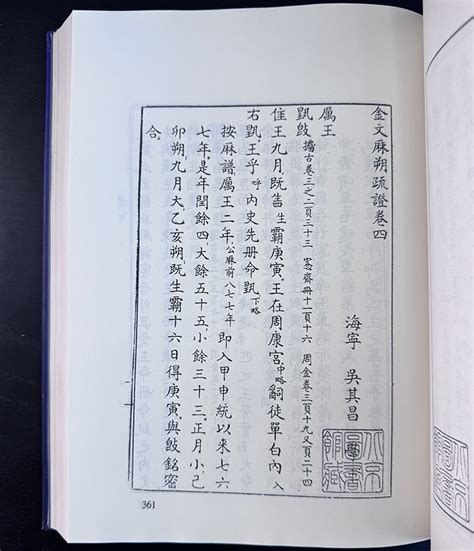 金文厤朔疏證卷四
海寧 吳其昌
厲王
㽙𣪘 攈古卷三之二頁三十三 愙齋冊十一頁十六 周金卷三頁十九又頁二十四
隹王九月既生霸庚寅王在周康宮中略嗣徒單白內入
右㽙王乎呼內史先册命㽙下略
按厤譜厲王二年公厤前八七七年即入甲申統以來七六
七年是年閏餘四大餘五十五小餘三十三正月小己
卯朔九月大乙亥朔既生霸十六日得庚寅與𣪘銘密
合
361